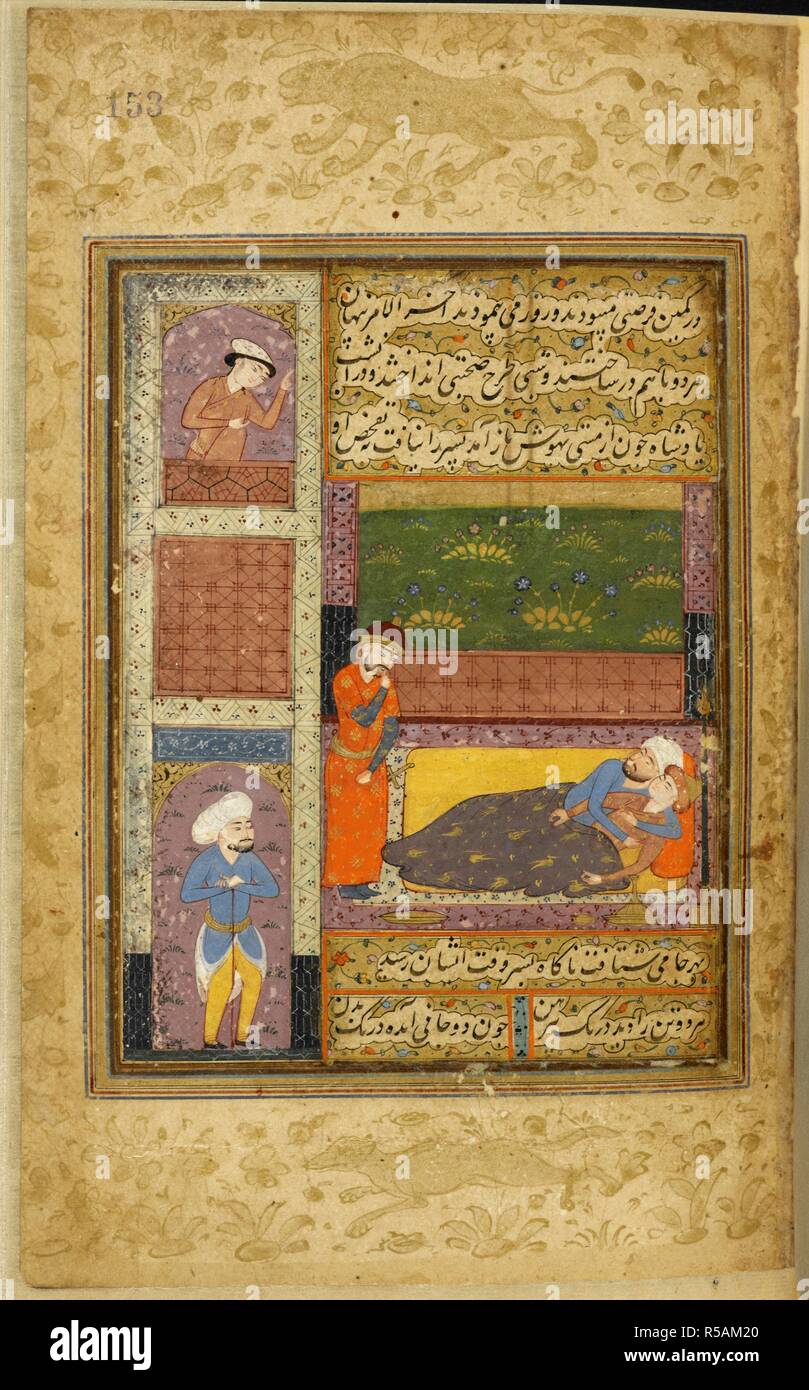 153
در کمین فرصتی میبودند و روز می پیمودند آخر الامر نهان
هر دو با هم در ساختند و شبی طرح صحبتی انداختند و در آن
پادشاه چون از مستی بهوش باز آمد پسر را نیافت به تفحص او
بهر جا می شتافت ناگاه بسر وقت ایشان رسید
هر دو تن را دید در یک پیرهن
چون دو جانی آمده در یک بدن
alamy
Image ID: R5AM20
www.alamy.com